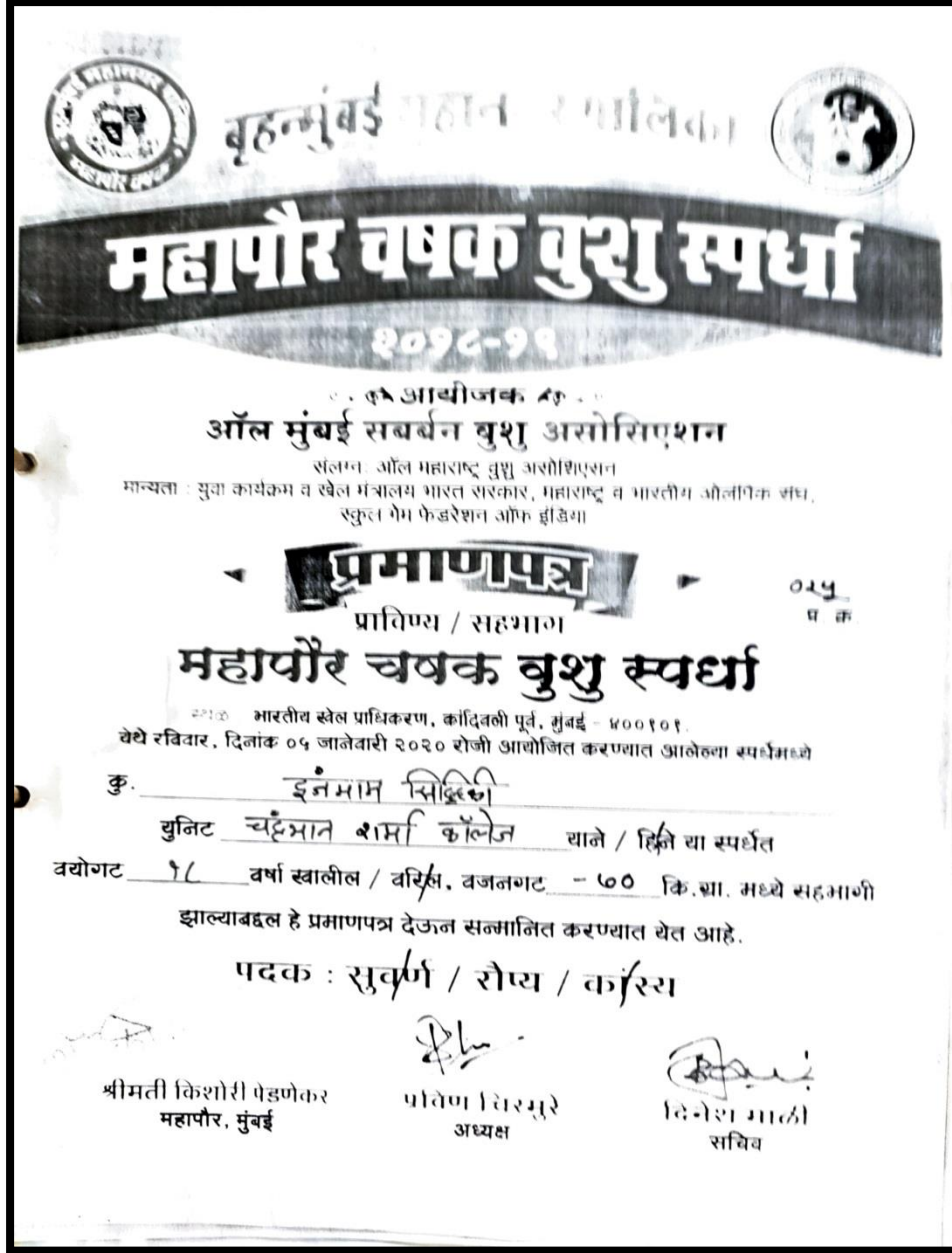 बृहन्मुंबई महानगरपालिका
महापौर चषक
महापौर चषक वुशु स्पर्धा
२०१८-१९
आयोजक
ऑल मुंबई सबर्बन वुशु असोसिएशन
संलग्न: ऑल महाराष्ट्र वुशु असोशिएसन
मान्यता : युवा कार्यक्रम व खेल मंत्रालय भारत सरकार, महाराष्ट्र व भारतीय ओलंपिक संघ,
स्कुल गेम फेडरेशन ऑफ इंडिया
प्रमाणपत्र
०२५
प्र क्र
प्राविण्य / सहभाग
महापौर चषक वुशु स्पर्धा
भारतीय खेल प्राधिकरण, कांदिवली पूर्व, मुंबई - ४००१०१.
येथे रविवार, दिनांक ०५ जानेवारी २०२० रोजी आयोजित करण्यात आलेल्या स्पर्धेमध्ये
कु. इनमाम सिद्दिकी
युनिट चंद्रभान शर्मा कॉलेज याने / हिने या स्पर्धेत
वयोगट १८ वर्षा खालील / वरिल, वजनगट - ७० कि.ग्रा. मध्ये सहभागी
झाल्याबद्दल हे प्रमाणपत्र देऊन सन्मानित करण्यात येत आहे.
पदक : सुवर्ण / रौप्य / कांस्य
श्रीमती किशोरी पेडणेकर
महापौर, मुंबई
प्रविण चिरमुरे
अध्यक्ष
दिनेश माळी
सचिव